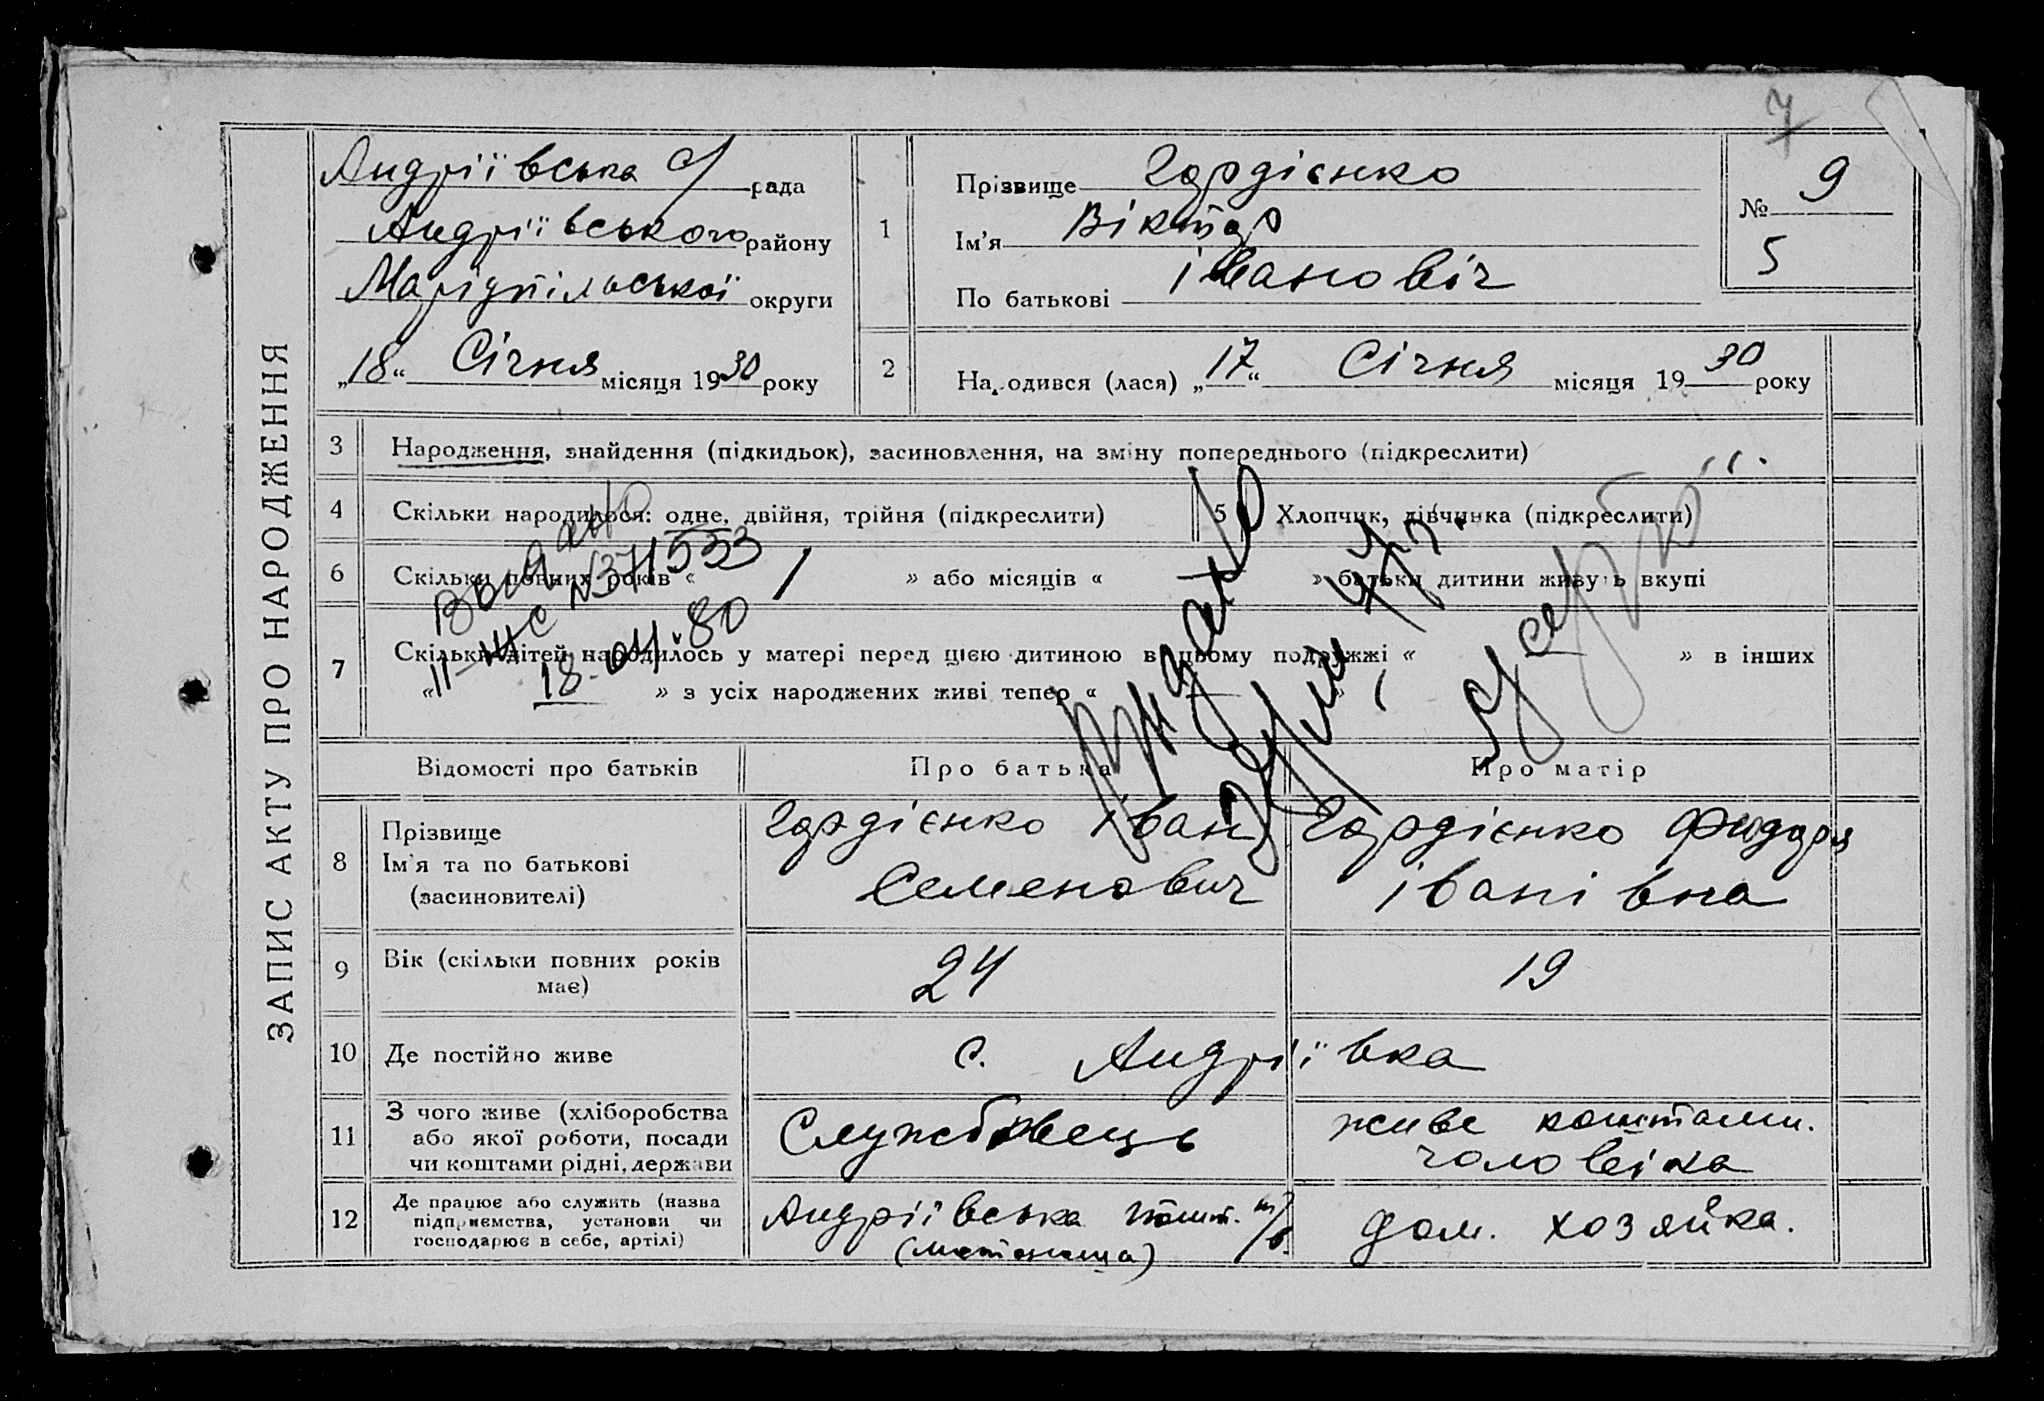 7
ЗАПИС АКТУ ПРО НАРОДЖЕННЯ
Андріївська с/ рада
Андріївського району
Маріупільської округи
„18“ Січня місяця 1930 року
1
Прізвище Гордієнко
Ім'я Віктор
По батькові івановіч
№ 9
5
2
Народився (лася) „17“ Січня місяця 1930 року
3 Народження, знайдення (підкидьок), засиновлення, на зміну попереднього (підкреслити)
4 Скільки народилося: одне, двійня, трійня (підкреслити)
5 Хлопчик, дівчинка (підкреслити)
6 Скільки повних років « » або місяців « » батьки дитини живуть вкупі
7 Скільки дітей народилось у матері перед цією дитиною в цьому подружжі « » в інших
« » з усіх народжених живі тепер « »
Выдано
ІІ-ЖС №371533
18-04-80
Відомості про батьків
Про батька
Про матір
8
Прізвище
Ім'я та по батькові
(засиновителі)
Гордієнко іван
Семенович
Гордієнко Федора
іванівна
9 Вік (скільки повних років
має)
24
19
10 Де постійно живе
с. Андріївка
11
З чого живе (хліборобства
або якої роботи, посади
чи коштами рідні, держави
Службовець
живе коштами.
чоловіка
12
Де працює або служить (назва
підприємства, установи чи
господарює в себе, артілі)
Андріївська пошт. т/в.
дом. хозяйка.